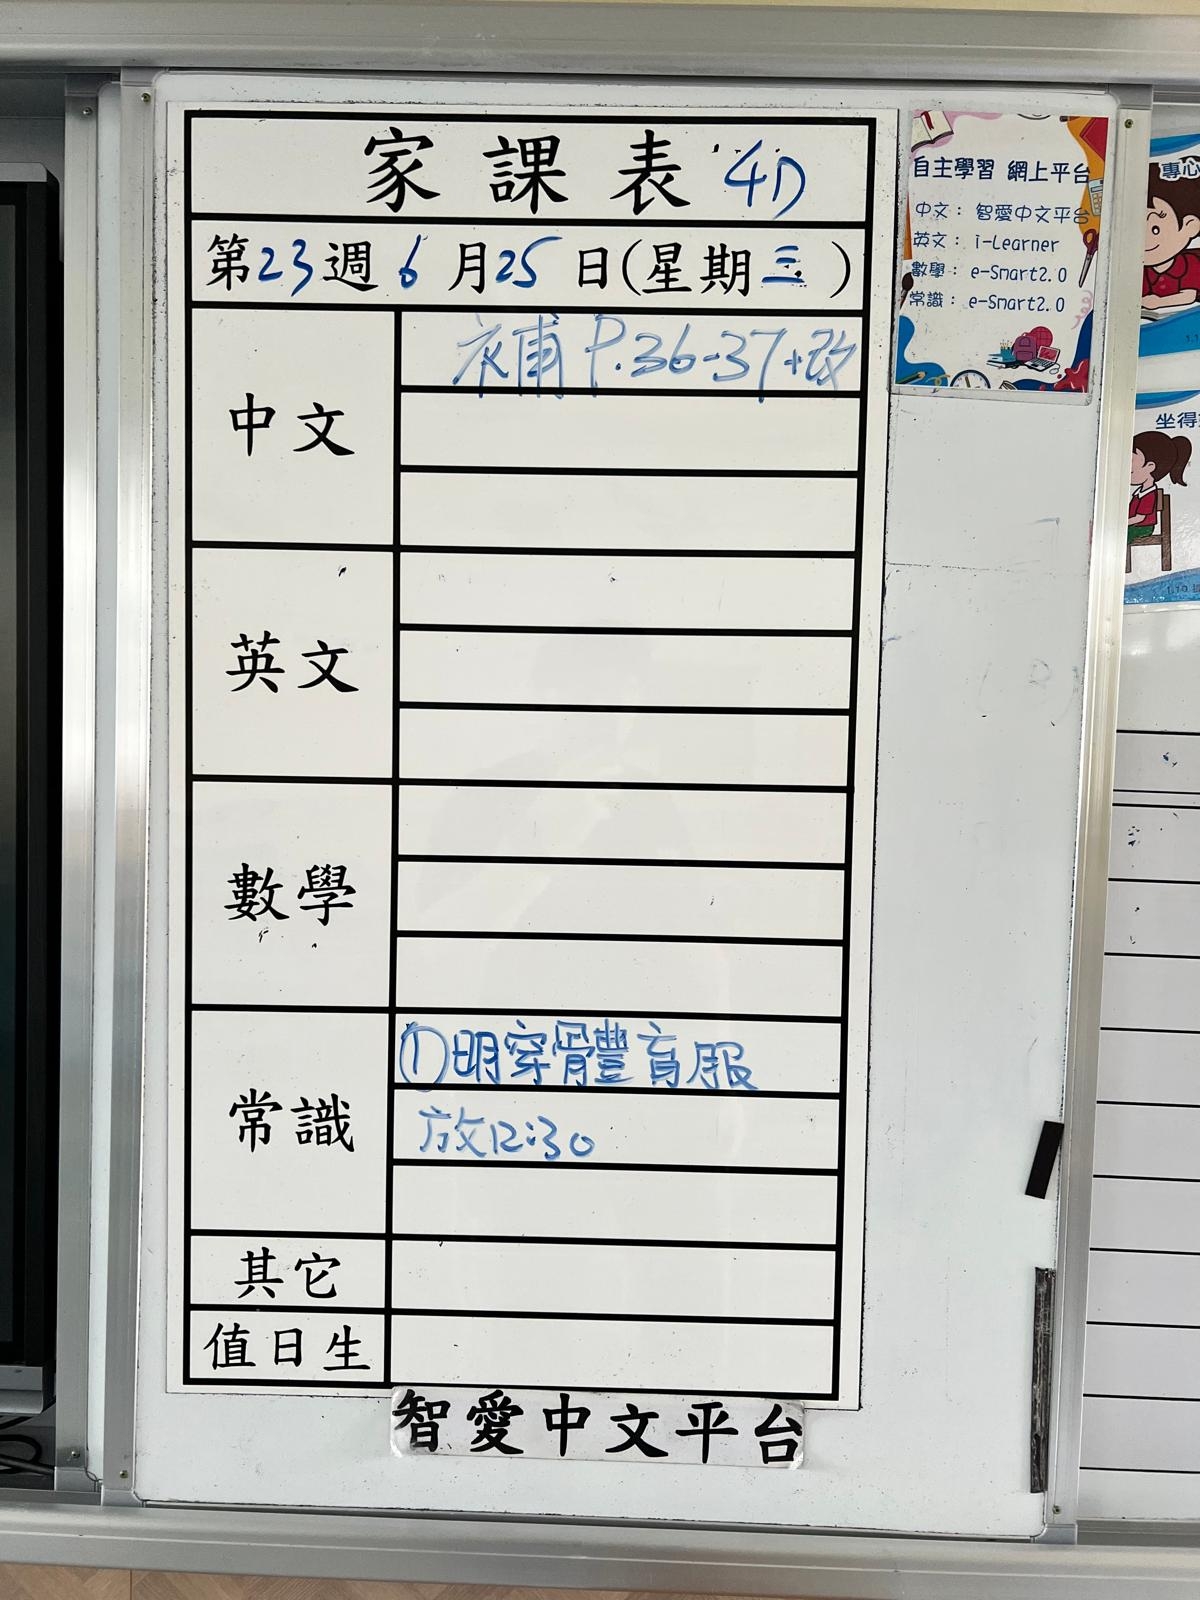 家課表 4D
第23週 6月25日(星期三)
中文
補 P.36-37+改
英文
數學
常識
①明穿體育服
放12:30
其它
值日生
智愛中文平台
自主學習 網上平台
中文： 智愛中文平台
英文： i-Learner
數學： e-Smart2.0
常識： e-Smart2.0
專心
坐得